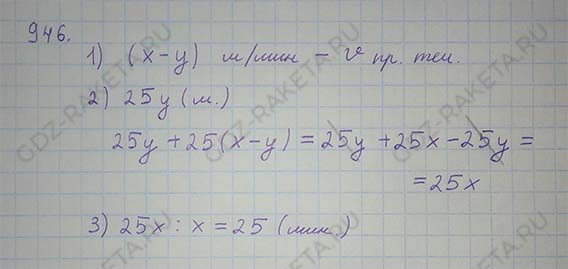 946.
1) (x-y) м/мин - v пр. теч.
2) 25y (м.)
25y + 25(x-y) = 25y + 25x - 25y =
= 25x
3) 25x : x = 25 (мин.)
GDZ-RAKETA.RU
GDZ-RAKETA.RU
GDZ-RAKETA.RU
GDZ-RAKETA.RU